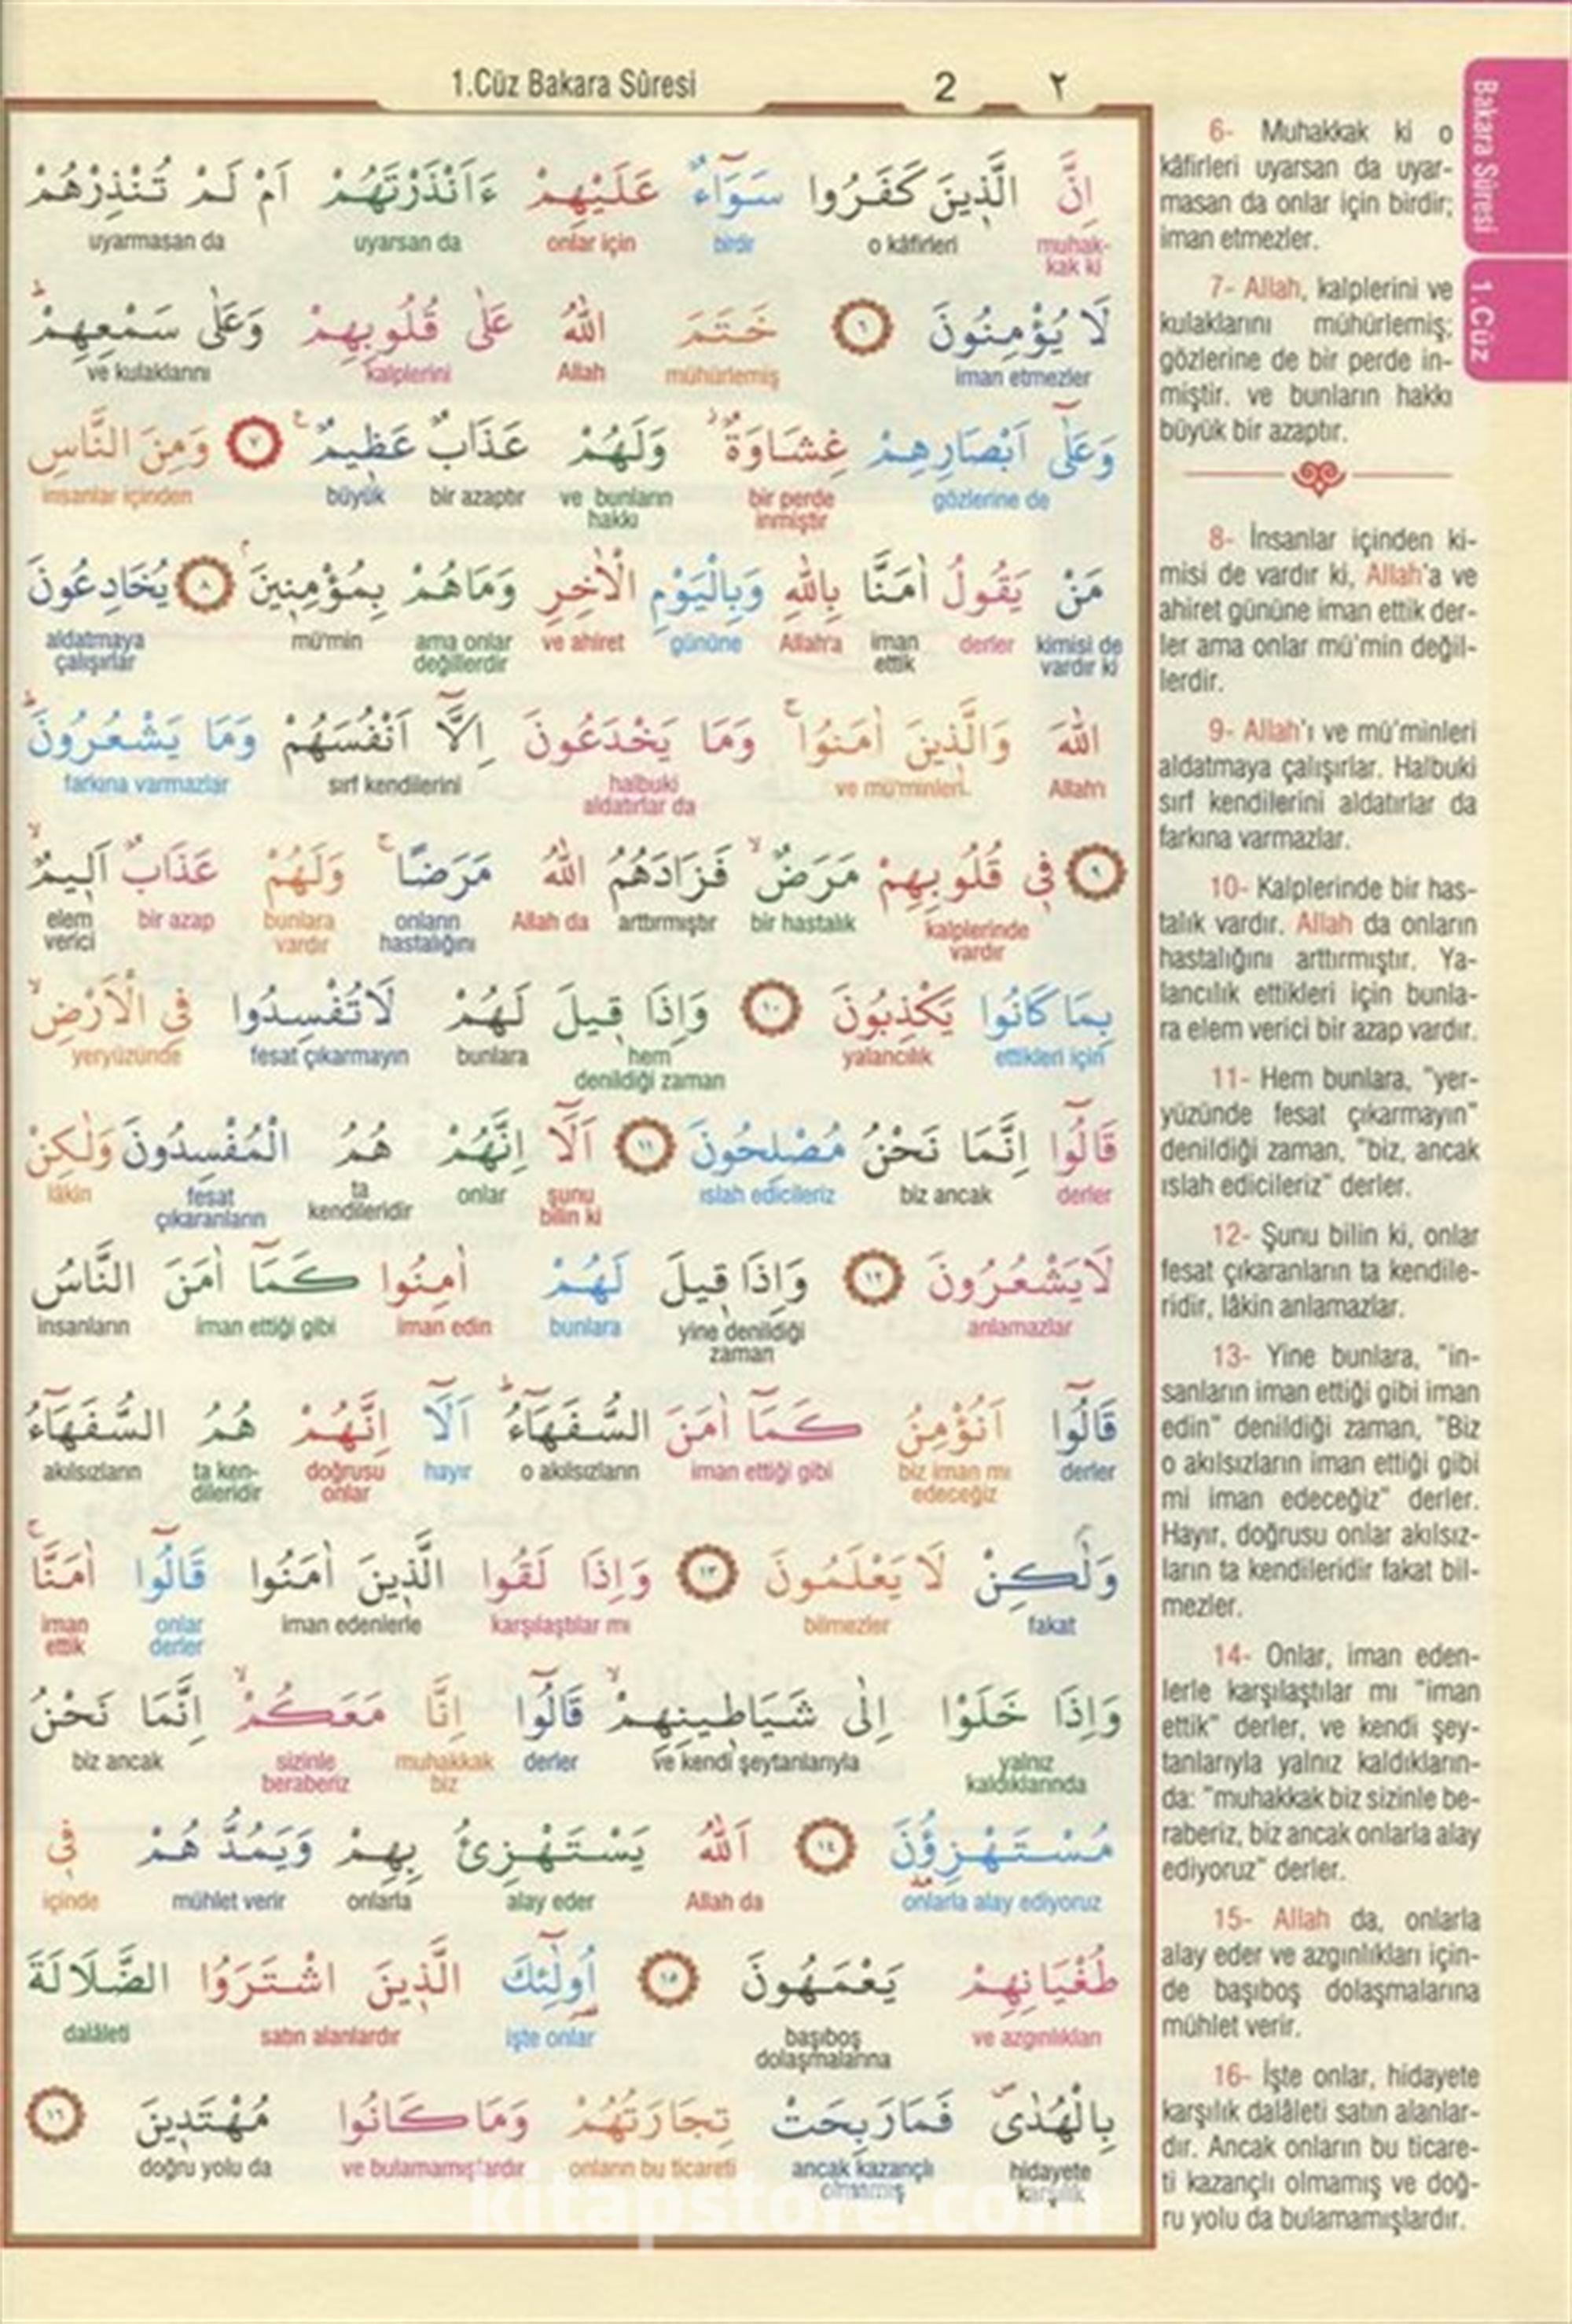 1.Cüz Bakara Sûresi 2 ٢
Bakara Sûresi
1.Cüz
اِنَّ الَّذِينَ كَفَرُوا سَوَٓاءٌ عَلَيْهِمْ ءَاَنْذَرْتَهُمْ اَمْ لَمْ تُنْذِرْهُمْ
muhak- o kâfirleri birdir onlar için uyarsan da uyarmasan da
kak ki
لَا يُؤْمِنُونَ ٦ خَتَمَ اللّٰهُ عَلٰى قُلُوبِهِمْ وَعَلٰى سَمْعِهِمْ ط
iman etmezler mühürlemiş Allah kalplerini ve kulaklarını
وَعَلٰٓى اَبْصَارِهِمْ غِشَاوَةٌ ز وَلَهُمْ عَذَابٌ عَظِيمٌ ع ٧ وَمِنَ النَّاسِ
gözlerine de bir perde ve bunların bir azaptır büyük insanlar içinden
inmiştir hakkı
مَنْ يَقُولُ اٰمَنَّا بِاللّٰهِ وَبِالْيَوْمِ الْاٰخِرِ وَمَاهُمْ بِمُؤْمِنِينَ م ٨ يُخَادِعُونَ
kimisi de derler iman Allah'a gününe ve ahiret ama onlar mü'min aldatmaya
vardır ki ettik değillerdir çalışırlar
اللّٰهَ وَالَّذِينَ اٰمَنُوا ج وَمَا يَخْدَعُونَ اِلَّٓا اَنْفُسَهُمْ وَمَا يَشْعُرُونَ ط
Allah'ı ve mü'minleri halbuki sırf kendilerini farkına varmazlar
aldatırlar da
٩ فِي قُلُوبِهِمْ مَرَضٌ لا فَزَادَهُمُ اللّٰهُ مَرَضًا ج وَلَهُمْ عَذَابٌ اَلِيمٌ لا
kalplerinde bir hastalık arttırmıştır Allah da onların bunlara bir azap elem
vardır hastalığını vardır verici
بِمَا كَانُوا يَكْذِبُونَ ١٠ وَاِذَا قِيلَ لَهُمْ لَاتُفْسِدُوا فِي الْاَرْضِ لا
ettikleri için yalancılık hem bunlara fesat çıkarmayın yeryüzünde
denildiği zaman
قَالُٓوا اِنَّمَا نَحْنُ مُصْلِحُونَ ١١ اَلَٓا اِنَّهُمْ هُمُ الْمُفْسِدُونَ وَلٰكِنْ
derler biz ancak ıslah edicileriz şunu onlar ta fesat lâkin
bilin ki kendileridir çıkaranların
لَايَشْعُرُونَ ١٢ وَاِذَا قِيلَ لَهُمْ اٰمِنُوا كَمَٓا اٰمَنَ النَّاسُ
anlamazlar yine denildiği bunlara iman edin iman ettiği gibi insanların
zaman
قَالُٓوا اَنُؤْمِنُ كَمَٓا اٰمَنَ السُّفَهَٓاءُ ط اَلَٓا اِنَّهُمْ هُمُ السُّفَهَٓاءُ
derler biz iman mı iman ettiği gibi o akılsızların hayır doğrusu ta ken- akılsızların
edeceğiz onlar dileridir
وَلٰكِنْ لَا يَعْلَمُونَ ١٣ وَاِذَا لَقُوا الَّذِينَ اٰمَنُوا قَالُٓوا اٰمَنَّا ج
fakat bilmezler karşılaştılar mı iman edenlerle onlar iman
derler ettik
وَاِذَا خَلَوْا اِلٰى شَيَاطِينِهِمْ لا قَالُٓوا اِنَّا مَعَكُمْ لا اِنَّمَا نَحْنُ
yalnız ve kendi şeytanlarıyla derler muhakkak sizinle biz ancak
kaldıklarında biz beraberiz
مُسْتَهْزِؤُنَ ١٤ اَللّٰهُ يَسْتَهْزِئُ بِهِمْ وَيَمُدُّ هُمْ فِي
onlarla alay ediyoruz Allah da alay eder onlarla mühlet verir içinde
طُغْيَانِهِمْ يَعْمَهُونَ ١٥ اُو۬لٰٓئِكَ الَّذِينَ اشْتَرَوُا الضَّلَالَةَ
ve azgınlıkları başıboş işte onlar satın alanlardır dalâleti
dolaşmalarına
بِالْهُدٰى ص فَمَارَبِحَتْ تِجَارَتُهُمْ وَمَا كَانُوا مُهْتَدِينَ ١٦
hidayete ancak kazançlı onların bu ticareti ve bulamamışlardır doğru yolu da
karşılık olmamış
kitapstore.com
6- Muhakkak ki o
kâfirleri uyarsan da uyar-
masan da onlar için birdir;
iman etmezler.
7- Allah, kalplerini ve
kulaklarını mühürlemiş;
gözlerine de bir perde in-
miştir. ve bunların hakkı
büyük bir azaptır.
8- İnsanlar içinden ki-
misi de vardır ki, Allah'a ve
ahiret gününe iman ettik der-
ler ama onlar mü'min değil-
lerdir.
9- Allah'ı ve mü'minleri
aldatmaya çalışırlar. Halbuki
sırf kendilerini aldatırlar da
farkına varmazlar.
10- Kalplerinde bir has-
talık vardır. Allah da onların
hastalığını arttırmıştır. Ya-
lancılık ettikleri için bunla-
ra elem verici bir azap vardır.
11- Hem bunlara, "yer-
yüzünde fesat çıkarmayın"
denildiği zaman, "biz, ancak
ıslah edicileriz" derler.
12- Şunu bilin ki, onlar
fesat çıkaranların ta kendile-
ridir, lâkin anlamazlar.
13- Yine bunlara, "in-
sanların iman ettiği gibi iman
edin" denildiği zaman, "Biz
o akılsızların iman ettiği gibi
mi iman edeceğiz" derler.
Hayır, doğrusu onlar akılsız-
ların ta kendileridir fakat bil-
mezler.
14- Onlar, iman eden-
lerle karşılaştılar mı "iman
ettik" derler, ve kendi şey-
tanlarıyla yalnız kaldıkların-
da: "muhakkak biz sizinle be-
raberiz, biz ancak onlarla alay
ediyoruz" derler.
15- Allah da, onlarla
alay eder ve azgınlıkları için-
de başıboş dolaşmalarına
mühlet verir.
16- İşte onlar, hidayete
karşılık dalâleti satın alanlar-
dır. Ancak onların bu ticare-
ti kazançlı olmamış ve doğ-
ru yolu da bulamamışlardır.